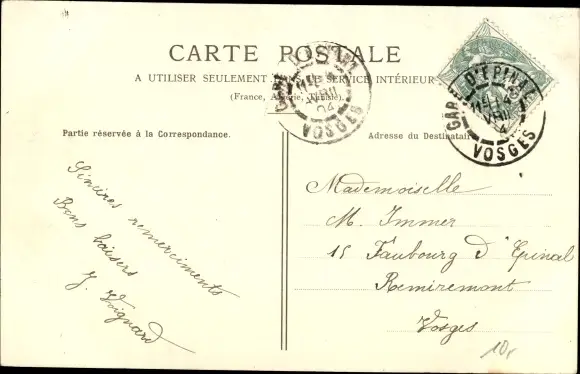 CARTE POSTALE
A UTILISER SEULEMENT DANS LE SERVICE INTÉRIEUR
(France, Algérie, Tunisie).
Partie réservée à la Correspondance.
Adresse du Destinataire
GARE D'EPINAL
AVRIL
04
VOSGES
GARE D'EPINAL
AVRIL
VOSGES
Sincères remerciments
Bons baisers
J. Voignard
Mademoiselle
M. Immer
15 Faubourg d'Epinal
Remiremont
Vosges
10,